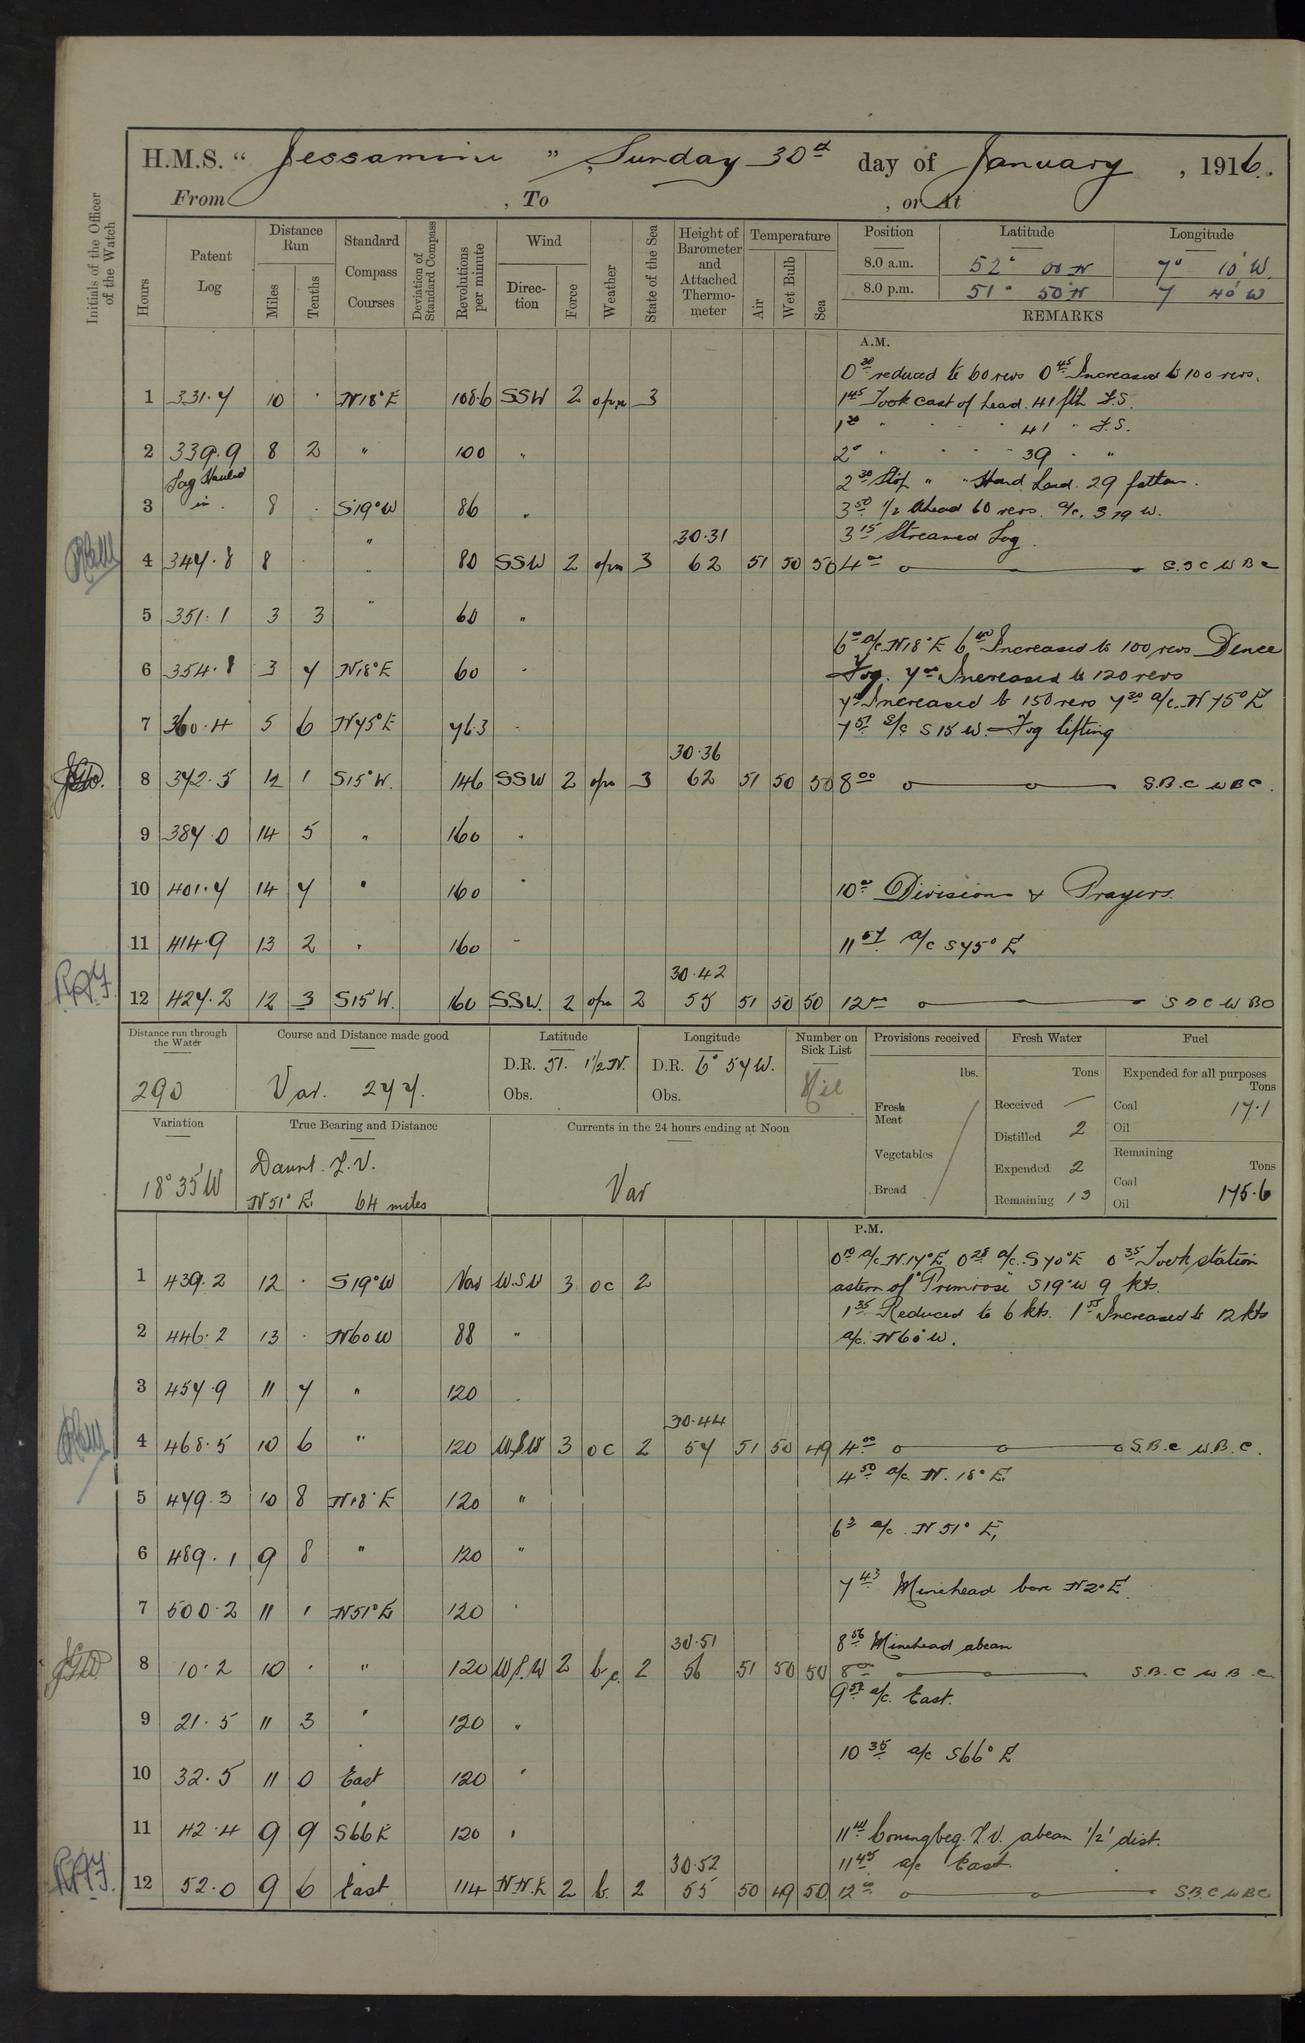 H.M.S. " Jessamine ", Sunday 30th day of January, 1916.
From , To , or At
Initials of the Officer of the Watch
Hours
Patent Log
Distance Run
Miles
Tenths
Standard Compass Courses
Deviation of Standard Compass
Revolutions per minute
Wind
Direction
Force
Weather
State of the Sea
Height of Barometer and Attached Thermometer
Temperature
Air
Wet Bulb
Sea
Position Latitude Longitude
8.0 a.m. 52° 00 N 7° 10' W.
8.0 p.m. 51° 50' N 7 40' W
REMARKS
A.M.
0 30 reduced to 60 revs 0 45 Increased to 100 revs.
1 331.7 10 . N18°E 108.6 SSW 2 3 1 45 Took cast of Lead. 41 fth F.S.
" " " 41 " F.S.
2 339.9 8 2 " 100 " 2 " " " 39 " "
Log Hauled
2 30 Stop " " Hand Lead. 29 fathom.
3 in. 8 . S19°W 86 " 3 50 1/2 Ahead 60 revs. a/c. S 19 W.
" 30.31 3 15 Streamed Log.
4 347.8 8 . " 80 SSW 2 3 62 51 50 50 4 00
5 351.1 3 3 " 60 "
6 00 a/c N18°E 6 40 Increased to 100 revs Dence
6 354.8 3 7 N18°E 60 " Fog. 7 00 Increased to 120 revs
Increased to 150 revs 7 20 a/c. N 75° E
7 360.4 5 6 N75°E 76.3 " 7 57 a/c S 15 W. Fog lifting
30.36
8 372.5 12 1 S15°W. 146 SSW 2 3 62 51 50 50 8 00 S.B.C W B C.
9 387.0 14 5 " 160 "
10 401.7 14 7 " 160 " 10 00 Divisions & Prayers.
11 414.9 13 2 " 160 " 11 57 a/c S75° E
30.42
12 427.2 12 3 S15°W. 160 SSW. 2 2 55 51 50 50 12 00
Distance run through the Water
290
Course and Distance made good
Var. 277.
Latitude
D.R. 51. 1½ N.
Obs.
Longitude
D.R. 6° 57 W.
Obs.
Number on Sick List
Nil
Provisions received
lbs.
Fresh Meat
Vegetables
Bread
Fresh Water
Tons
Received —
Distilled 2
Expended 2
Remaining 13
Fuel
Expended for all purposes
Tons
Coal 17.1
Oil
Remaining
Tons
Coal
Oil 175.6
Variation
18° 35' W
True Bearing and Distance
Daunt. L.V.
N51° E. 64 miles
Currents in the 24 hours ending at Noon
Var
P.M.
0 10 a/c N.17°E 0 28 a/c. S 70°E 0 35 Took station
1 439.2 12 . S19°W Var W.S.W 3 oc 2 astern of "Primrose" S19°W 9 kts.
1 35 Reduced to 6 kts. 1 55 Increased to 12 kts
2 446.2 13 . N60W 88 " a/c. N 60° W.
3 457.9 11 7 " 120 .
30.44
4 468.5 10 6 " 120 W.S.W 3 oc 2 57 51 50 49 4 00 S.B.C W.B.C.
4 50 a/c N. 18° E.
5 479.3 10 8 N18°E 120 "
6 3 a/c. N 51° E.
6 489.1 9 8 " 120 "
7 43 Minehead bore N2°E.
7 500.2 11 1 N51°E 120 "
30.51 8 56 Minehead abeam
8 10.2 10 . " 120 W.S.W 2 b.c. 2 56 51 50 50 8 00 S.B.C W B.C.
9 52 a/c. East.
9 21.5 11 3 " 120 "
10 35 a/c S66° E
10 32.5 11 0 East 120 "
11 42.4 9 9 S66E 120 " Coningbeg. L.V. abeam ½' dist.
30.52 11 45 a/c East
12 52.0 9 6 East 114 N.N.E 2 b. 2 55 50 49 50 12 00 S.B.C W B C